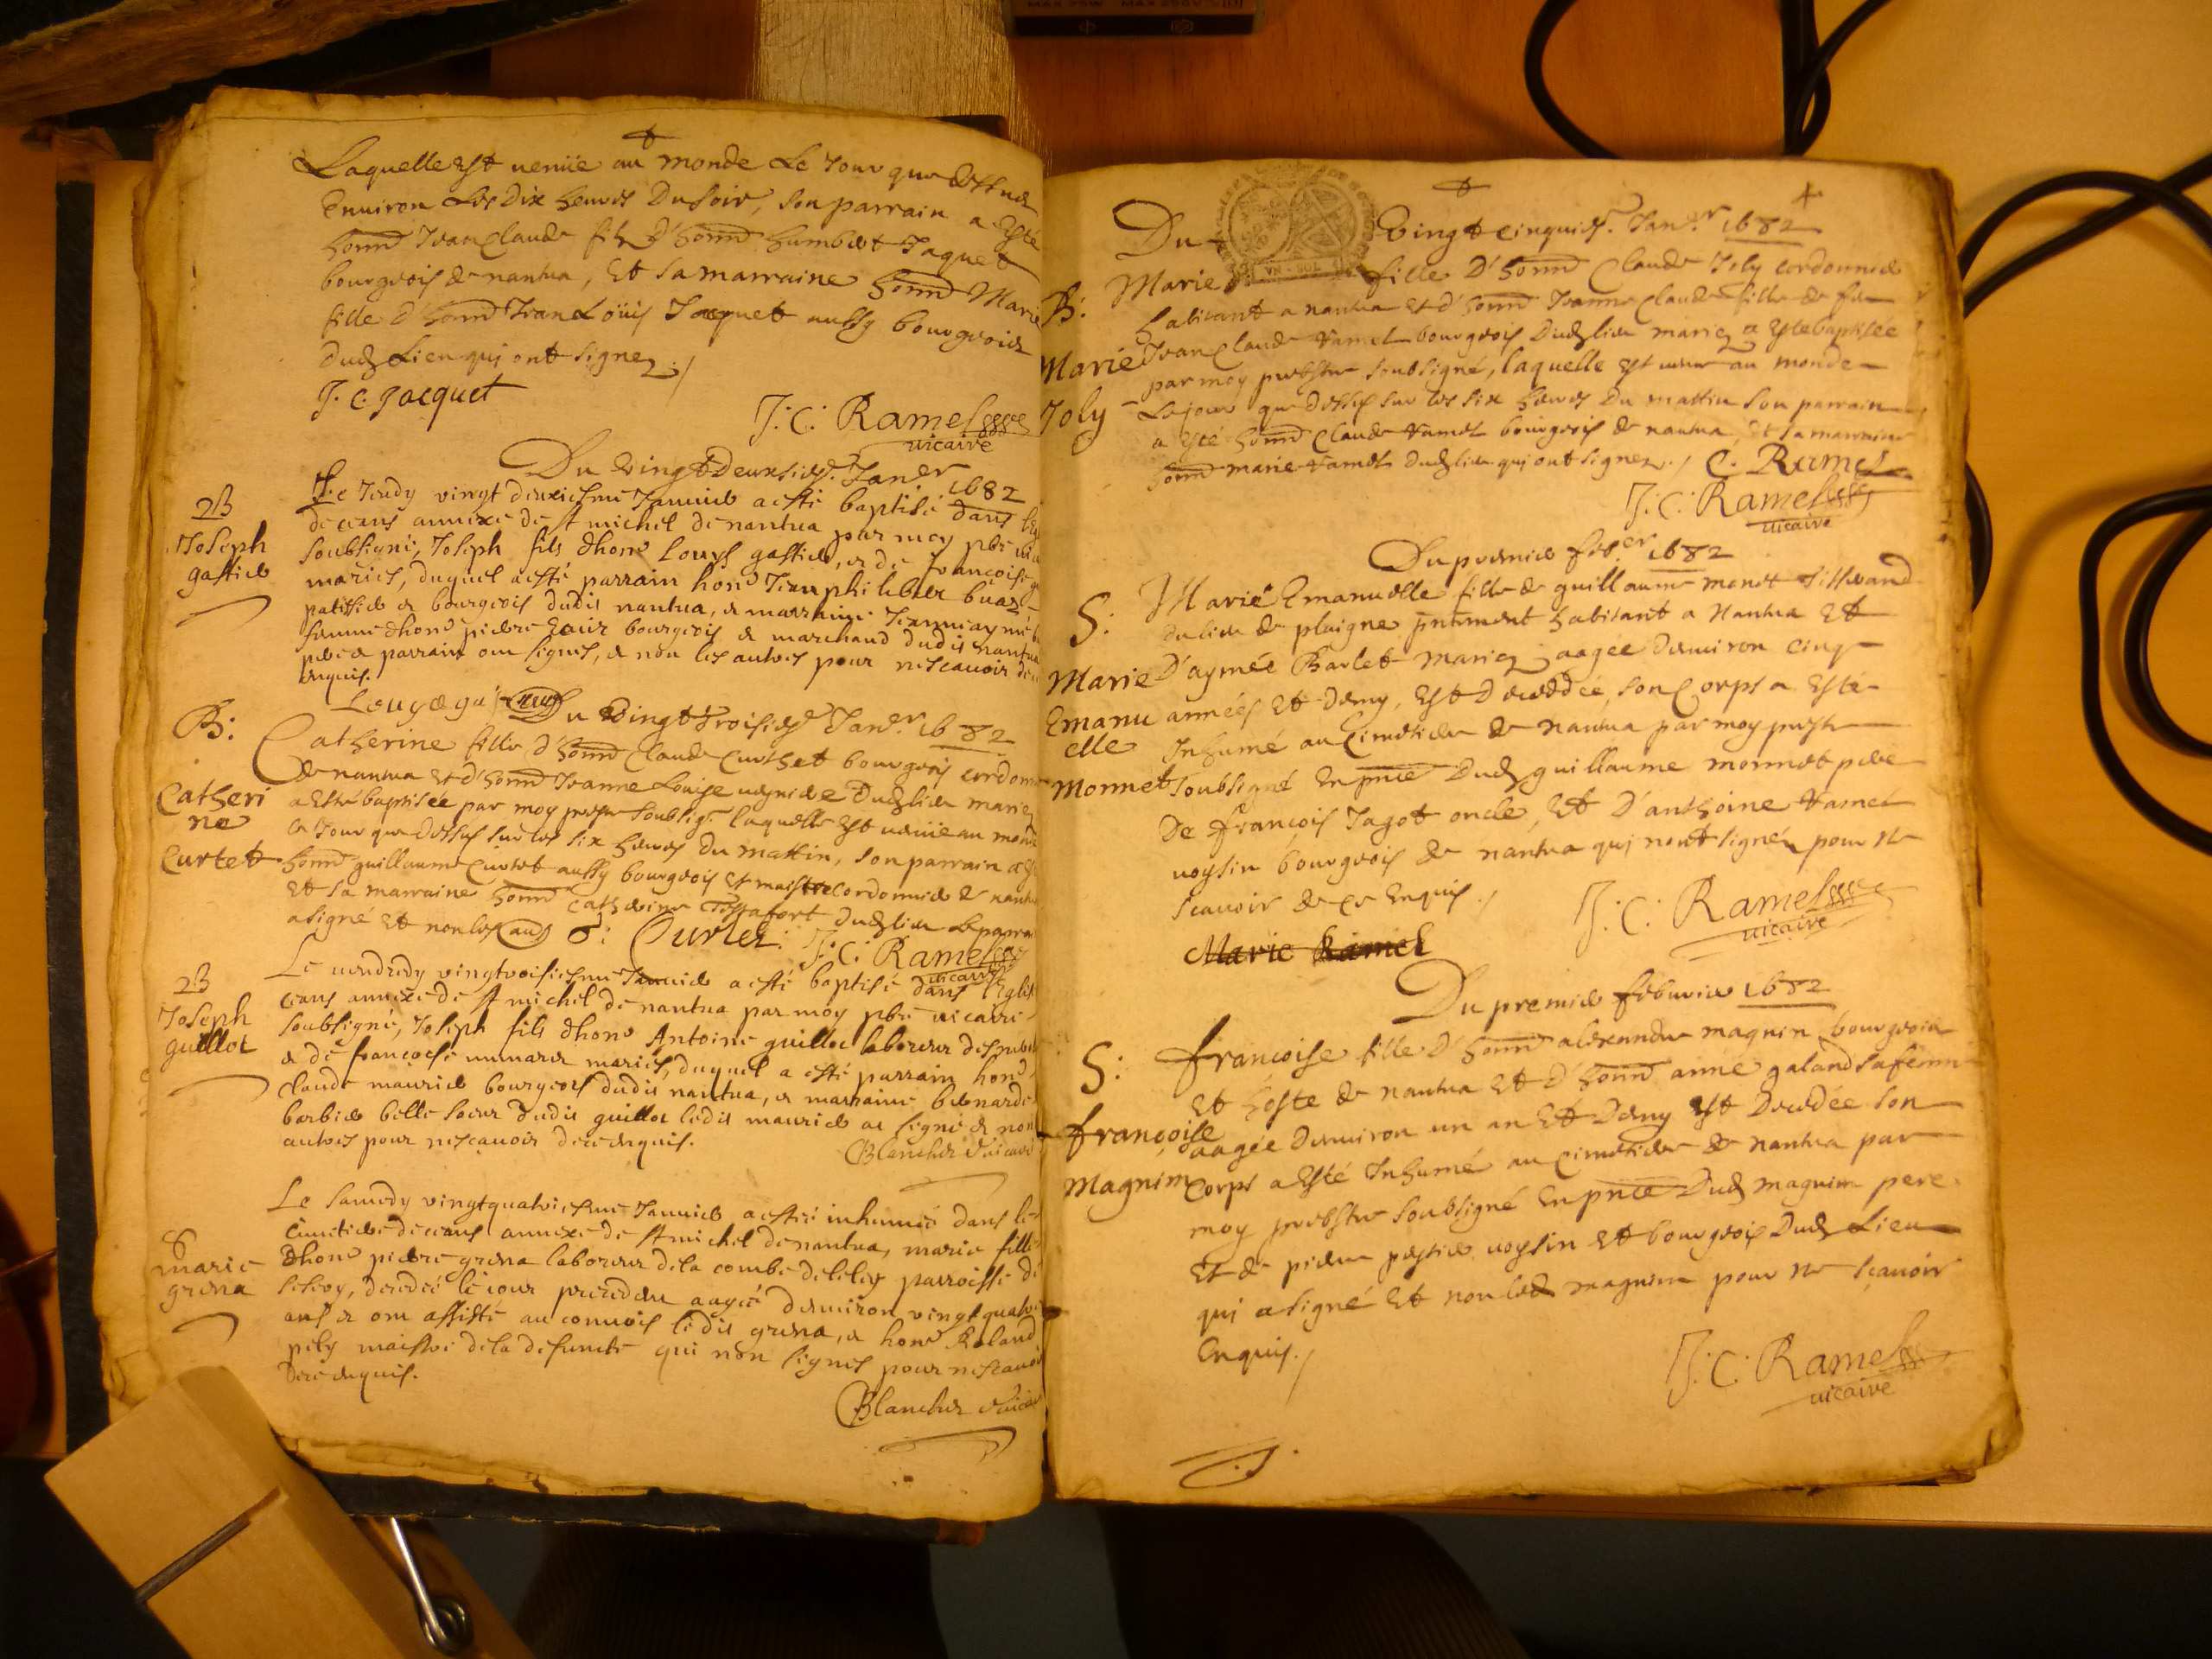 Laquelle est venüe au monde Le Jour que dessus
Environ Les Dix heures Du soir, son parrain a Esté
honn Jean Claude filz d'honn humbert Jaquet
bourgeois de nantua, Et sa marraine honn Marie
fille d'honn Jean Loüis Jacquet aussy bourgeois
dud Lieu qui ont signez
J. C. Jacquet
J: C: Ramel
vicaire
Du Vingt Deuxies Janer 1682
Le Jeudy vingt deuxiesme Januier a esté baptisé dans
de ceans annexe de st michel de nantua par moy pbre
soubsigné, Joseph fils dhono Louys gastier, et de francoise
mariés, duquel a esté parrain hono Jean philibert
patissier et bourgeois dudit nantua, et marraine
femme dhono pierre bourgeois et marchand dudit nantua
pere et parrain ont signés, et non les autres pour ne scavoir de
enquis.
2B
Joseph
gastier
Du Vingt Troisies Janer 1682
B:
Catheri
ne
Curtet
Catherine fille d'honn Claude Curthet bourgeois
de nantua Et d'honn Jeanne Louise dud lieu mariez
a Esté baptisée par moy soubsig laquelle Est venüe au monde
le Jour que dessus sur les six heures du mattin, son parrain a
honn guillaume Curtet aussy bourgeois Et maistre Cordonnier de nantua
Et sa marraine honn Catherine Tissafort dud lieu le parrain
a signé Et non les G: Curtet J: C: Ramel
vicaire
2B
Joseph
guillot
Le vendredy vingtroisiesme Januier a esté baptisé dans l'Eglise
ceans annexe de st michel de nantua par moy pbre vicaire
soubsigné, Joseph fils dhono Antoine guillot laboureur
et de francoise mariés, duquel a esté parrain hono
claude maurier bourgeois dudit nantua, et marraine bernarde
barbier belle soeur dudit guillot ledit maurier a signé et non
autres pour ne scavoir de ce enquis.
Blanchet vicaire
S
marie
grena
Le samedy vingtquatriesme Januier a esté inhumé dans le
cimetiere de ceans annexe de st michel de nantua, marie fille
dhono pierre grena laboureur de la combe parroisse de
decedée le iour precedent aagée denuiron vingt quatre
ans et ont assisté au conuois ledit grena, et hono Roland
maistre de la defuncte qui non signés pour ne scavoir
de ce enquis.
Blanchet vicaire
Du Vingt cinquies. Janer 1682
B:
Marie
Joly
Marie fille D'honn Claude Joly cordonnier
habitant a nantua et d'honn Jeanne Claude fille de feu
Jean Claude Ramel bourgeois dud lieu mariez a Esté baptisée
par moy prebstre soubsigné, laquelle est venue au monde
Le jour que dessus sur les six heures Du mattin son parrain
a Esté honn Claude Ramel bourgeois de nantua, Et sa marraine
honn marie Ramel dud lieu qui ont signez. C. Ramel
J: C: Ramel
vicaire
Du premier feber 1682
S:
Marie
Emanu
elle
Monnet
Marie Emanuelle fille de guillaume monet Tisserand
du lieu de plaigne habitant a Nantua Et
D'aymée Barlet mariez aagée denuiron cinq
années Et demy, Est décédée, son Corps a Esté
Inhumé au Cimetiere de nantua par moy
soubsigné En pnce dud guillaume monnet pere
De françois Jagot oncle, Et D'anthoine Ramel
voysin bourgeois de nantua qui nont signéz pour ne
scavoir de ce Enquis.
J: C: Ramel
vicaire
Marie Ramel
Du premier febvrier 1682
S:
françoise
Magnin
françoise fille d'honn alexandre magnin bourgeois
Et hoste de nantua Et d'honn aimé galand sa femme
aagée denuiron un an Et Demy Est Decedée son
Corps a Esté Inhumé au Cimetiere de nantua par
moy prebstre soubsigné En pnce Dud magnin pere
Et de pierre voysin Et bourgeois Dud Lieu
qui a signé Et non led magnin pour ne scavoir
Enquis.
J: C: Ramel
vicaire